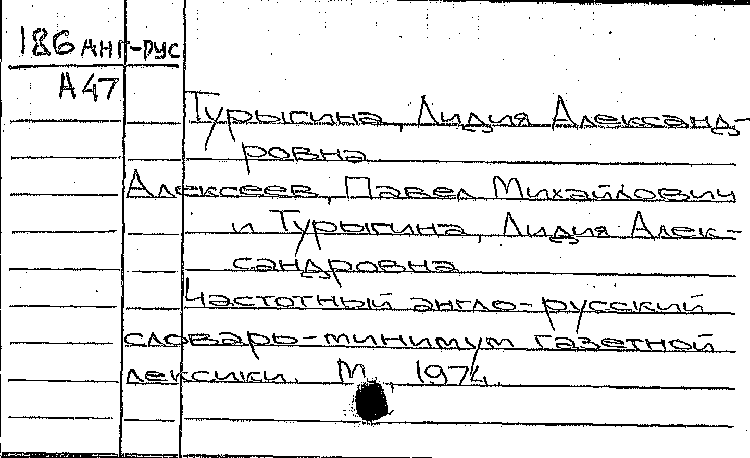 186 АНГ-РУС
А47
Турыгина, Лидия Александ-
ровна
Алексеев, Павел Михайлович
и Турыгина, Лидия Алек-
сандровна
Частотный англо-русский
словарь-минимум газетной
лексики. М., 1974.